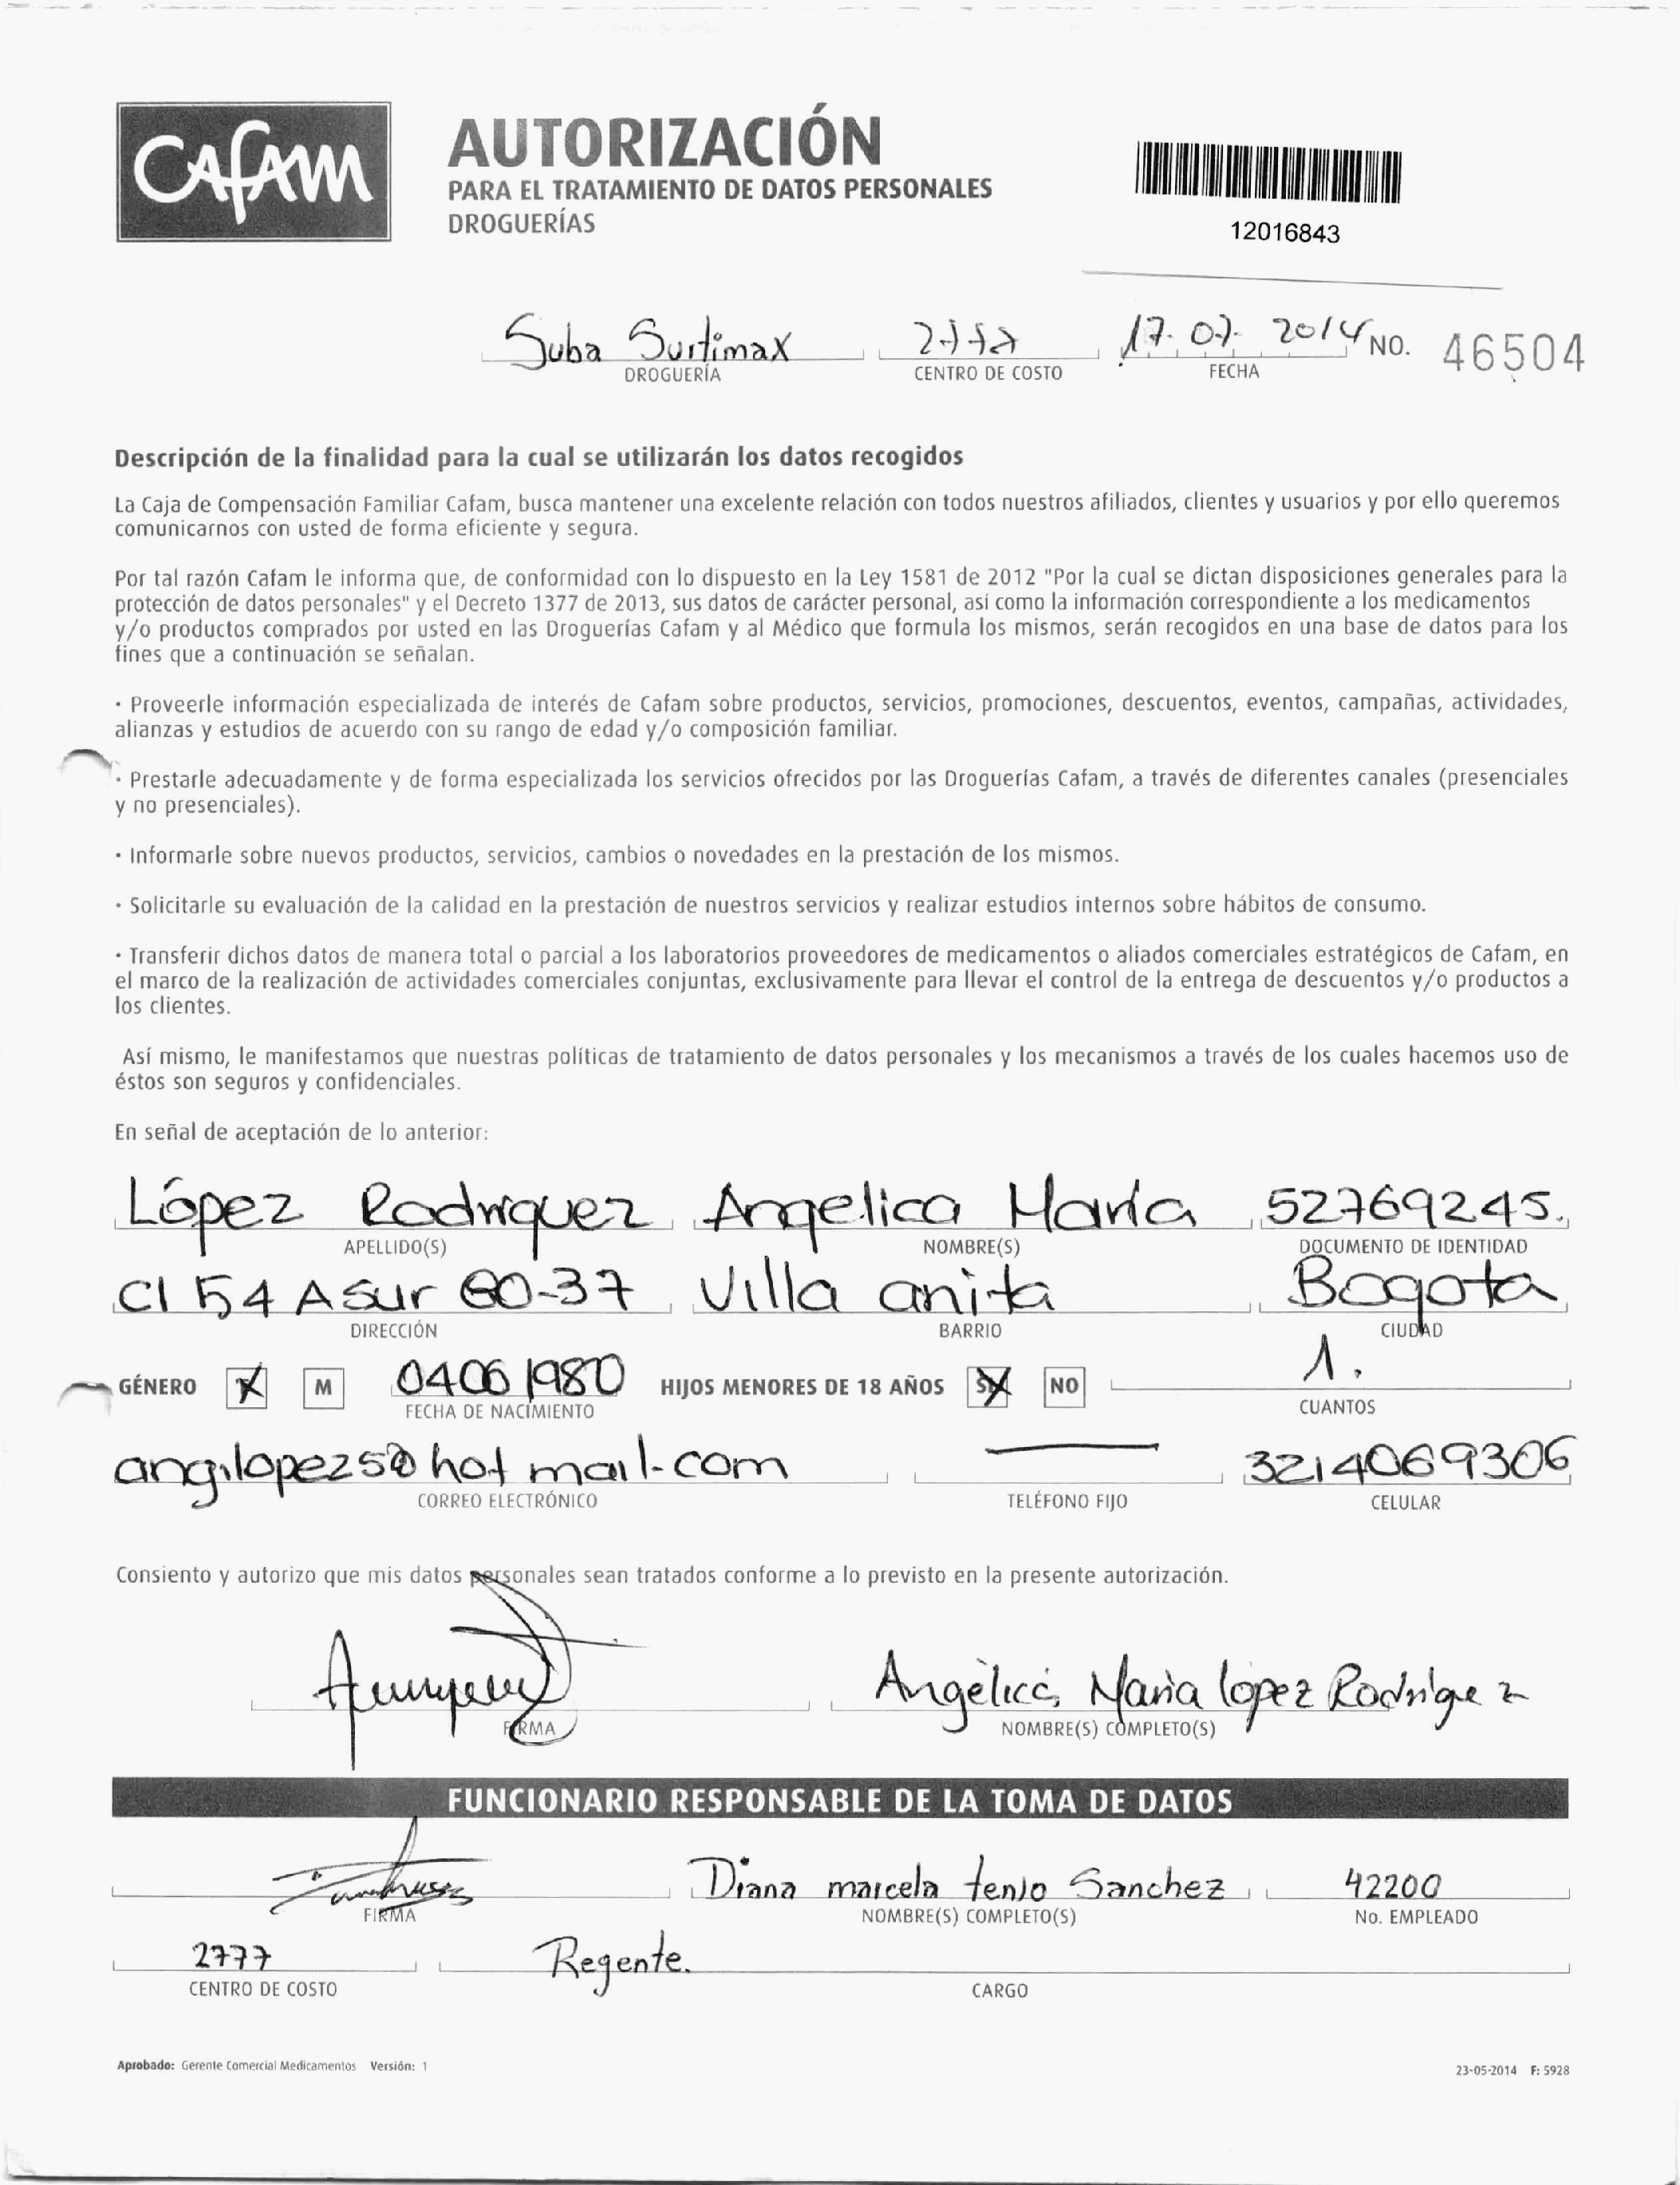 CAFAM
AUTORIZACIÓN
PARA EL TRATAMIENTO DE DATOS PERSONALES
DROGUERÍAS
12016843
Suba Surtimax 2777 17.07.2014 NO. 46504
DROGUERÍA CENTRO DE COSTO FECHA
Descripción de la finalidad para la cual se utilizarán los datos recogidos
La Caja de Compensación Familiar Cafam, busca mantener una excelente relación con todos nuestros afiliados, clientes y usuarios y por ello queremos
comunicarnos con usted de forma eficiente y segura.
Por tal razón Cafam le informa que, de conformidad con lo dispuesto en la Ley 1581 de 2012 "Por la cual se dictan disposiciones generales para la
protección de datos personales" y el Decreto 1377 de 2013, sus datos de carácter personal, así como la información correspondiente a los medicamentos
y/o productos comprados por usted en las Droguerías Cafam y al Médico que formula los mismos, serán recogidos en una base de datos para los
fines que a continuación se señalan.
· Proveerle información especializada de interés de Cafam sobre productos, servicios, promociones, descuentos, eventos, campañas, actividades,
alianzas y estudios de acuerdo con su rango de edad y/o composición familiar.
· Prestarle adecuadamente y de forma especializada los servicios ofrecidos por las Droguerías Cafam, a través de diferentes canales (presenciales
y no presenciales).
· Informarle sobre nuevos productos, servicios, cambios o novedades en la prestación de los mismos.
· Solicitarle su evaluación de la calidad en la prestación de nuestros servicios y realizar estudios internos sobre hábitos de consumo.
· Transferir dichos datos de manera total o parcial a los laboratorios proveedores de medicamentos o aliados comerciales estratégicos de Cafam, en
el marco de la realización de actividades comerciales conjuntas, exclusivamente para llevar el control de la entrega de descuentos y/o productos a
los clientes.
Así mismo, le manifestamos que nuestras políticas de tratamiento de datos personales y los mecanismos a través de los cuales hacemos uso de
éstos son seguros y confidenciales.
En señal de aceptación de lo anterior:
López Rodriguez Angelica María 52769245.
APELLIDO(S) NOMBRE(S) DOCUMENTO DE IDENTIDAD
Cl 54 A Sur 60-37 Villa anita Bogota
DIRECCIÓN BARRIO CIUDAD
GÉNERO X M 04061980 HIJOS MENORES DE 18 AÑOS SI X NO 1.
FECHA DE NACIMIENTO CUANTOS
angilopez5@hotmail.com 3214069306
CORREO ELECTRÓNICO TELÉFONO FIJO CELULAR
Consiento y autorizo que mis datos personales sean tratados conforme a lo previsto en la presente autorización.
Angelica Maria lopez Rodriguez
FIRMA NOMBRE(S) COMPLETO(S)
FUNCIONARIO RESPONSABLE DE LA TOMA DE DATOS
Diana marcela tenjo Sanchez 42200
FIRMA NOMBRE(S) COMPLETO(S) No. EMPLEADO
2777 Regente.
CENTRO DE COSTO CARGO
Aprobado: Gerente Comercial Medicamentos Versión: 1
23-05-2014 F: 5928